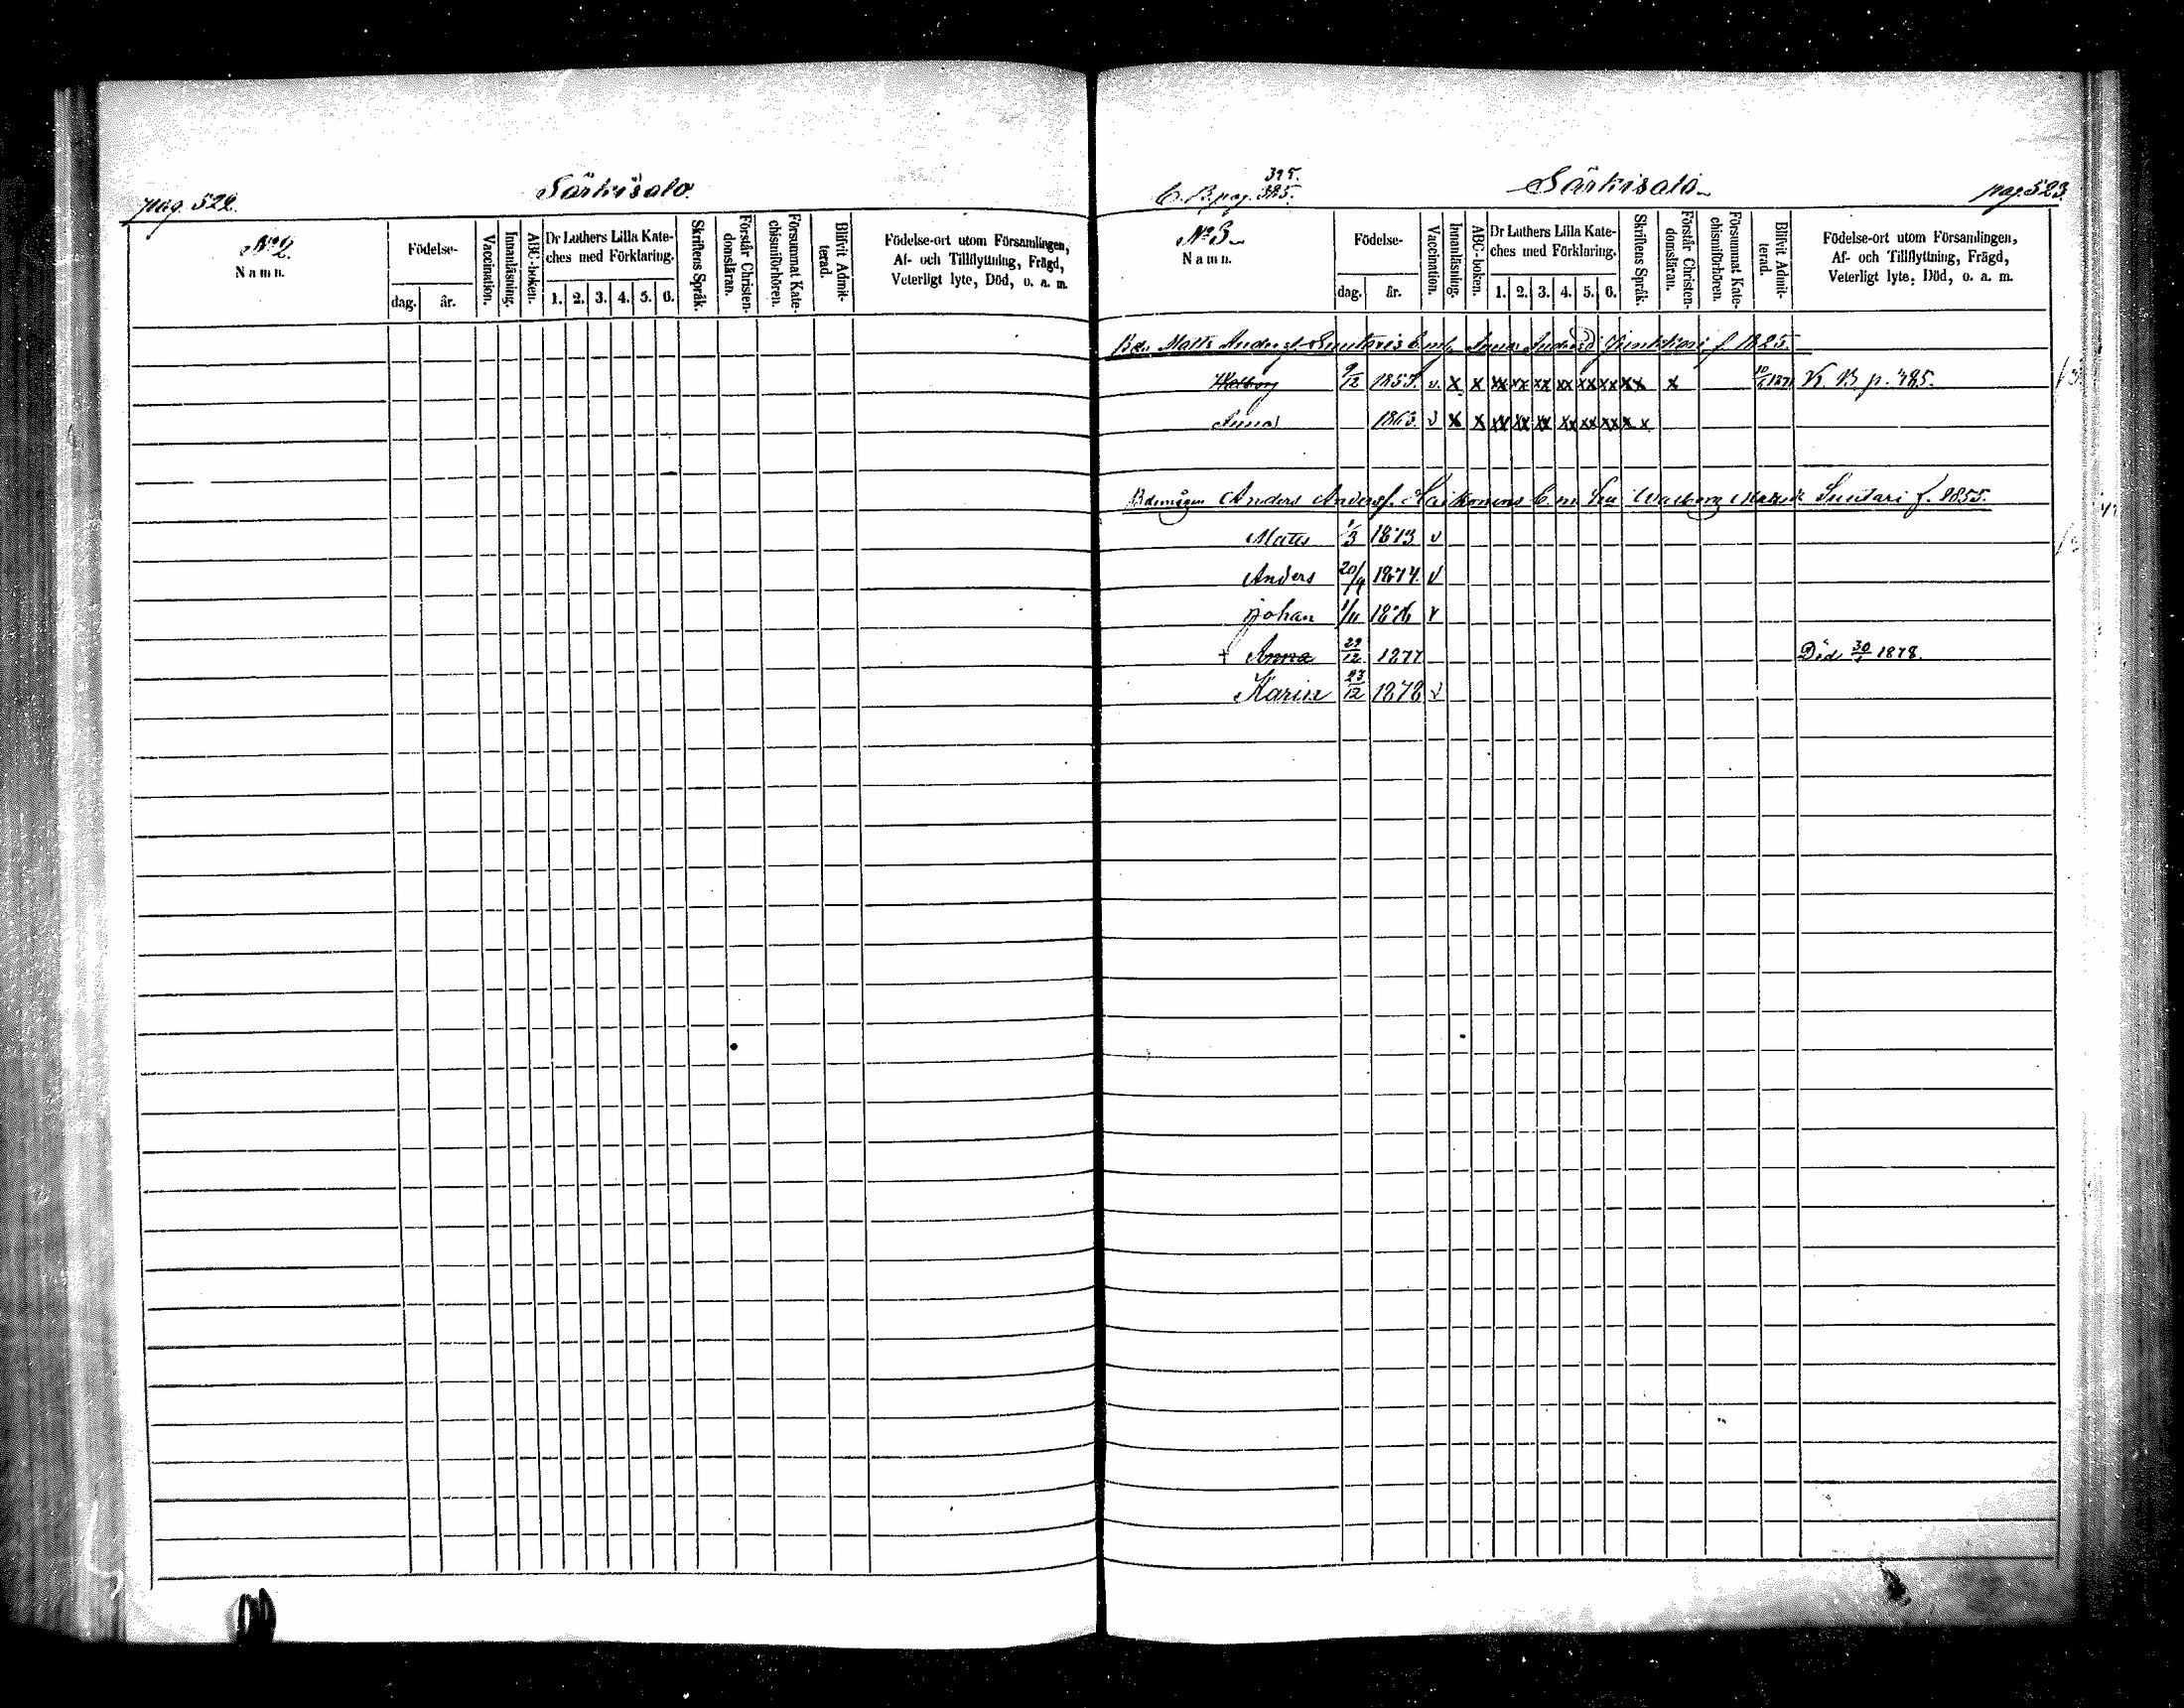 pag. 522.
Särkisalo.
No 2.
Namn.
Födelse-
dag.
år.
Vaccination.
Innanläsning.
ABC-boken.
Dr Luthers Lilla Kate-
ches med Förklaring.
1. 2. 3. 4. 5. 6.
Skriftens Språk.
Förstår Christen-
domsläran.
Försummat Kate-
chismiförhören.
Blifvit Admit-
terad.
Födelse-ort utom Församlingen,
Af- och Tillflyttning, Frägd,
Veterligt lyte, Död, o. a. m.
395.
C. B. pag. 385.
Särkisalo
pag. 523.
No 3
Namn.
Födelse-
dag.
år.
Vaccination.
Innanläsning.
ABC-boken.
Dr Luthers Lilla Kate-
ches med Förklaring.
1. 2. 3. 4. 5. 6.
Skriftens Språk.
Förstår Christen-
domsläran.
Försummat Kate-
chismiförhören.
Blifvit Admit-
terad.
Födelse-ort utom Församlingen,
Af- och Tillflyttning, Frägd,
Veterligt lyte, Död, o. a. m.
Bd. Matts Andersf. Suutaris Anna f. 1825.
Walborg 9/12 1855. v. x x xx xx xx xx xx xx xx x K. B. p. 485.
Anna 1863. v x x xx xx xx xx xx xx x x
Bdemågen Anders Andersf. Walborg Suutari f. 1855.
Matts 1/3 1873 v
Anders 20/4 1874. v
Johan 1/11 1876 v
+ Anna 29/12 1877 Död 30/1 1878.
Karin 23/12 1878 v